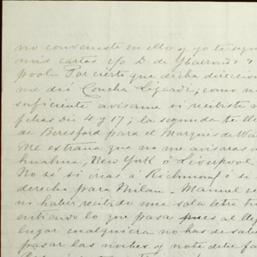 no conveniste en ello y yo te segui
mis cartas c/o D. de Ybarrondo &
pool. Por cierto que dicha direccion
me dió Concha Lizardi, como no
suficiente avisame si recibiste
fchas Dia 4 y 17; la segunda te
de Beresford para el Marqués de Wa
Me estraña que no me avisaras
huahua, New York ó Liverpool
No sé si irias á Richmond ó
derecho para Milan. Manuel
no haber recibido una sola letra
entiendo lo que pasa pues al
lugar cualquiera no has de
pasar las noches y note debe fa